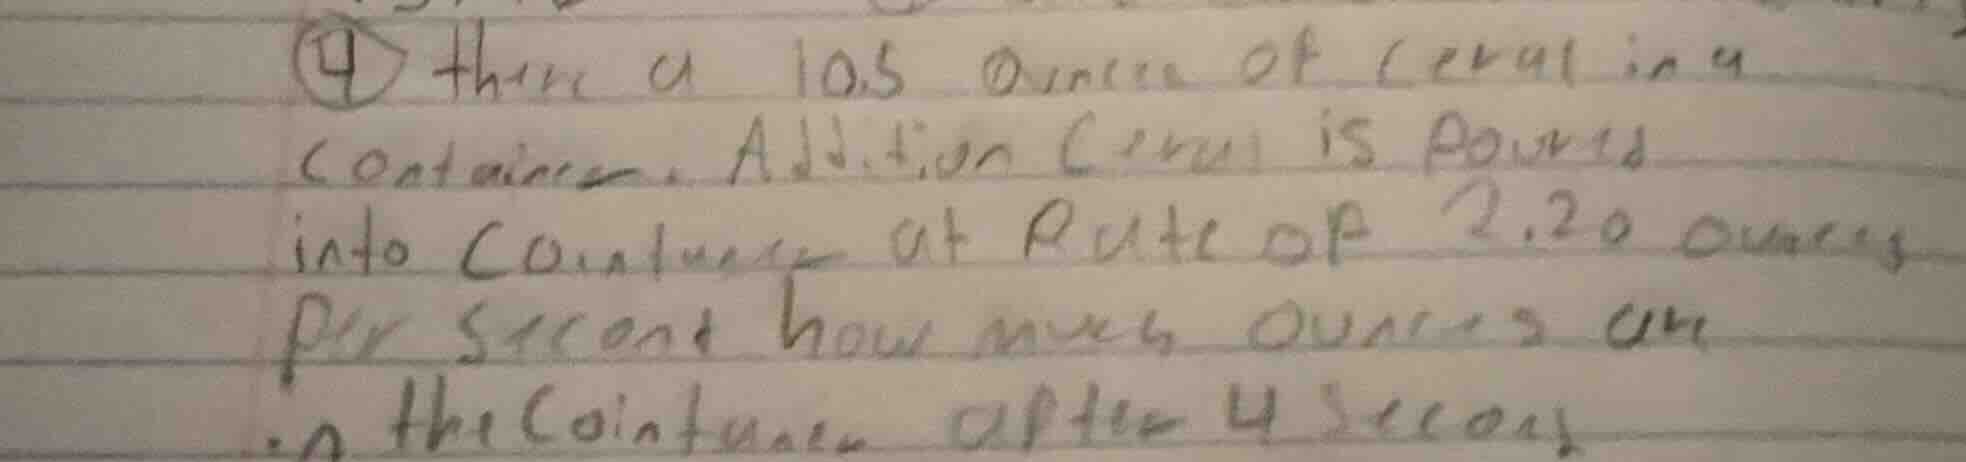 ④ there a 10.5 ounces of cerul in a
container. Addition Cerul is poured
into Cointuner at Rate of 2.20 ounces
per Second how much ounces are
in the Cointuner after 4 Second